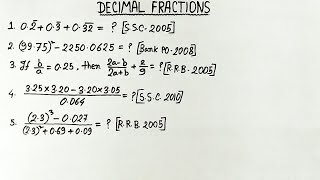 DECIMAL FRACTIONS
1. 0.2̅ + 0.3̅ + 0.3̅2̅ = ? [S.S.C. 2005]
2. (99.75)² - 2250.0625 = ? [Bank PO. 2008]
3. If b/a = 0.25, then (2a-b)/(2a+b) + 2/9 = ? [R.R.B. 2005]
4. (3.25 × 3.20 - 3.20 × 3.05)/0.064 = ? [S.S.C. 2010]
5. ((2.3)³ - 0.027)/((2.3)² + 0.69 + 0.09) = ? [R.R.B. 2005]